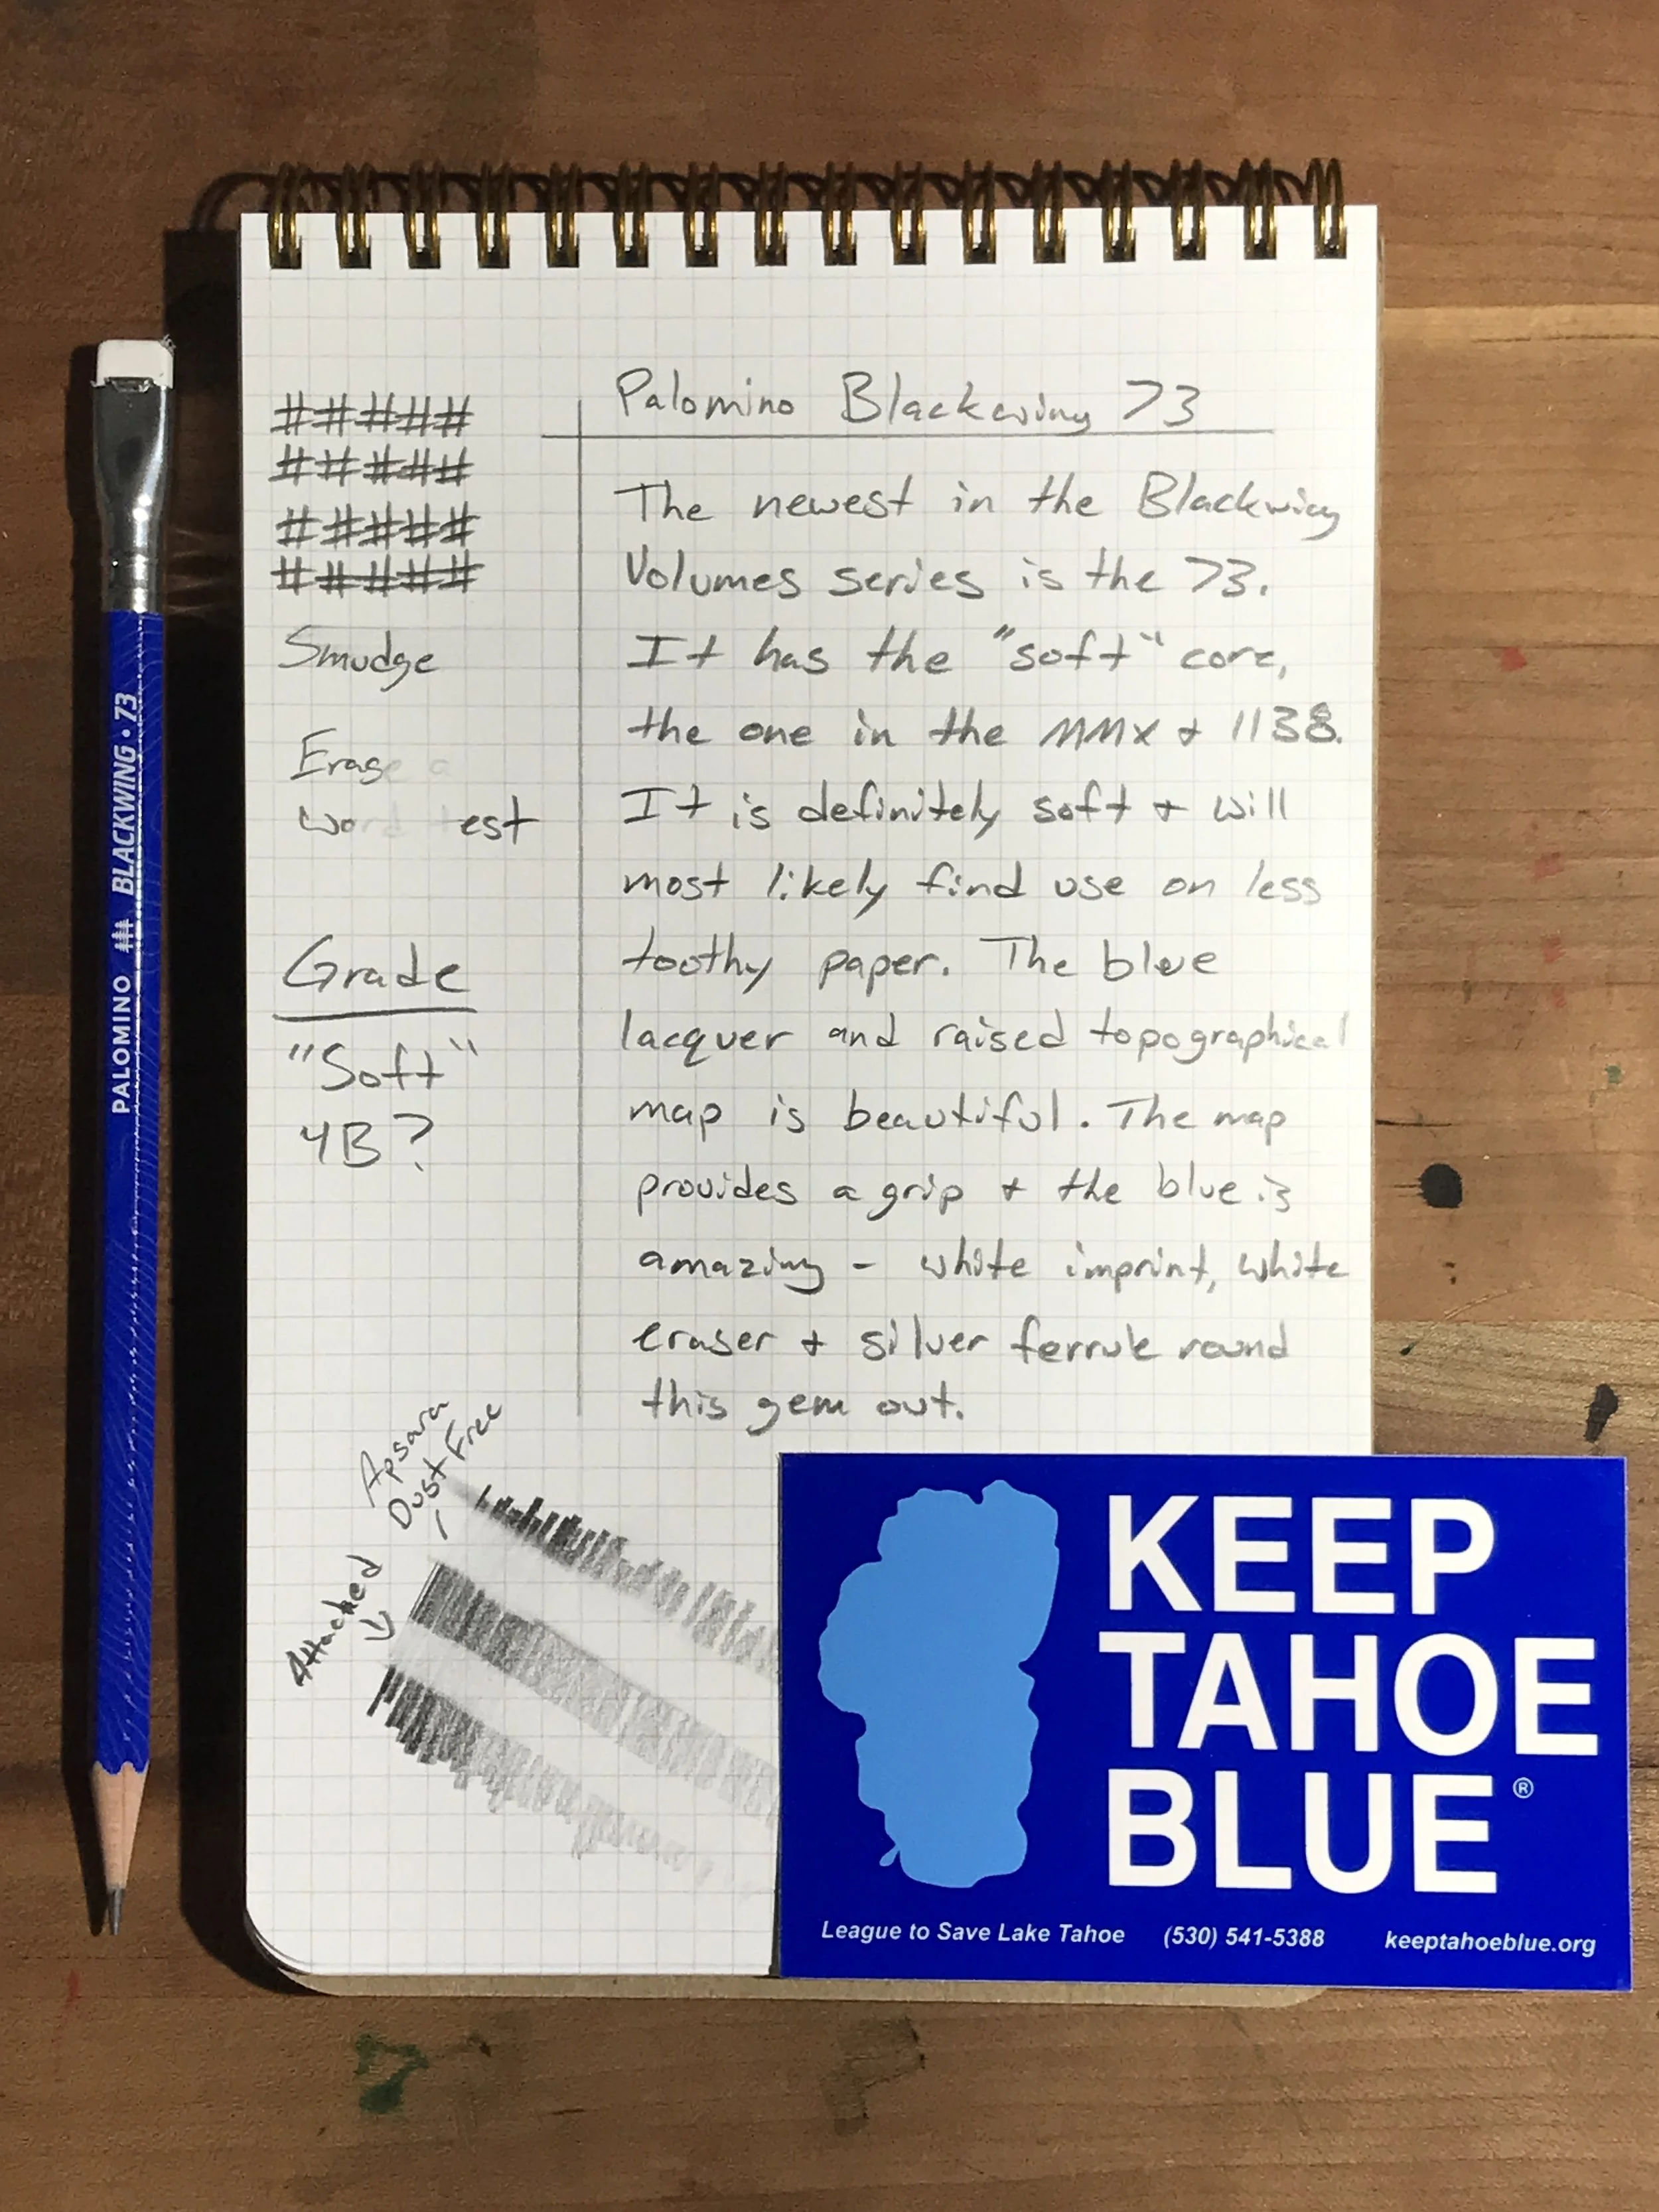 PALOMINO BLACKWING • 73
# # # # #
# # # # #
# # # # #
# # # # #
Smudge
Erase a
word test
Grade
"Soft"
4B?
Palomino Blackwing 73
The newest in the Blackwing
Volumes series is the 73.
It has the "soft" core,
the one in the MMX + 1138.
It is definitely soft + will
most likely find use on less
toothy paper. The blue
lacquer and raised topographical
map is beautiful. The map
provides a grip + the blue is
amazing - white imprint, white
eraser + silver ferrule round
this gem out.
Apsara
Dust Free
Attached
KEEP
TAHOE
BLUE®
League to Save Lake Tahoe (530) 541-5388 keeptahoeblue.org